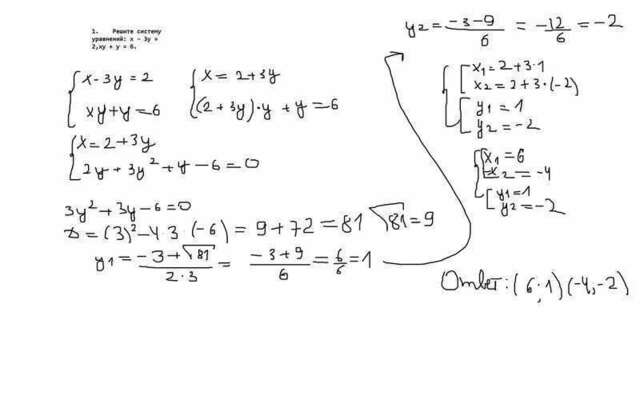 1. Решите систему
уравнений: x − 3y =
2,xy + y = 6.
{ x - 3y = 2
xy + y = 6
{ x = 2 + 3y
(2 + 3y)·y + y = 6
{ x = 2 + 3y
2y + 3y² + y - 6 = 0
3y² + 3y - 6 = 0
D = (3)² - 4·3·(-6) = 9 + 72 = 81 √81 = 9
y1 = (-3 + √81)/(2·3) = (-3 + 9)/6 = 6/6 = 1
y2 = (-3 - 9)/6 = -12/6 = -2
{ [ x1 = 2 + 3·1
x2 = 2 + 3·(-2)
[ y1 = 1
y2 = -2
{ [ x1 = 6
x2 = -4
[ y1 = 1
y2 = -2
Ответ: (6;1)(-4,-2)